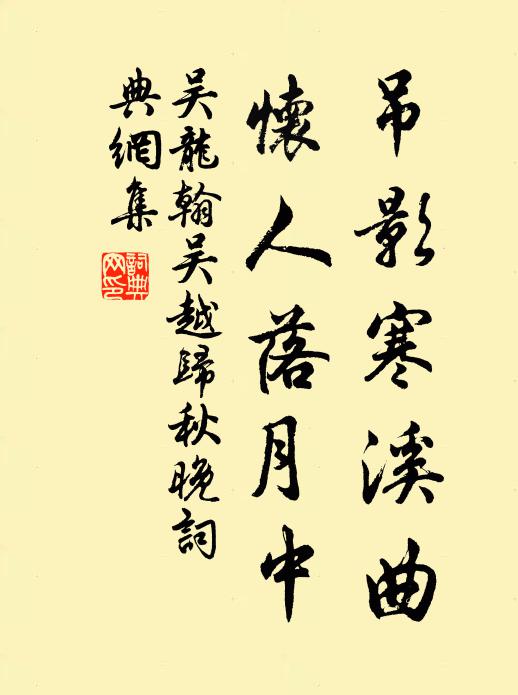 吊影寒溪曲
懷人落月中
吳龍翰吳越歸秋晚詞
典網集
詞典網印